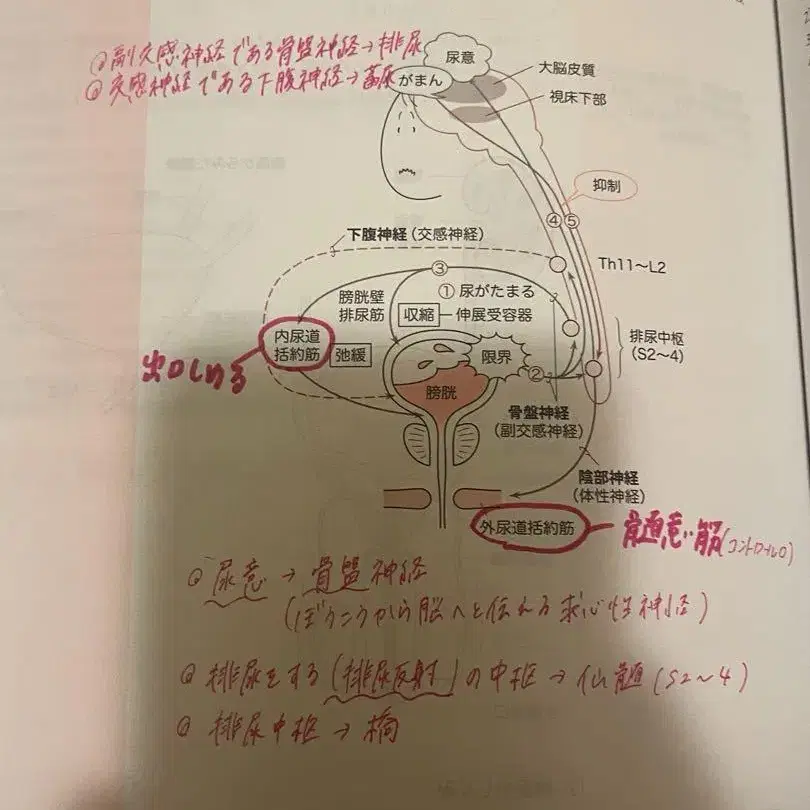 ①副交感神経である骨盤神経→排尿
②交感神経である下腹神経→蓄尿
尿意
がまん
大脳皮質
視床下部
抑制
④⑤
下腹神経(交感神経)
Th11〜L2
③
①尿がたまる
膀胱壁
排尿筋
収縮
伸展受容器
内尿道
括約筋
弛緩
限界
排尿中枢
(S2〜4)
出口しめる
膀胱
②
骨盤神経
(副交感神経)
陰部神経
(体性神経)
外尿道括約筋
随意筋(コントロール○)
尿意→骨盤神経
(ぼうこうから脳へと伝える求心性神経)
排尿をする(排尿反射)の中枢→仙髄(S2〜4)
排尿中枢→橋